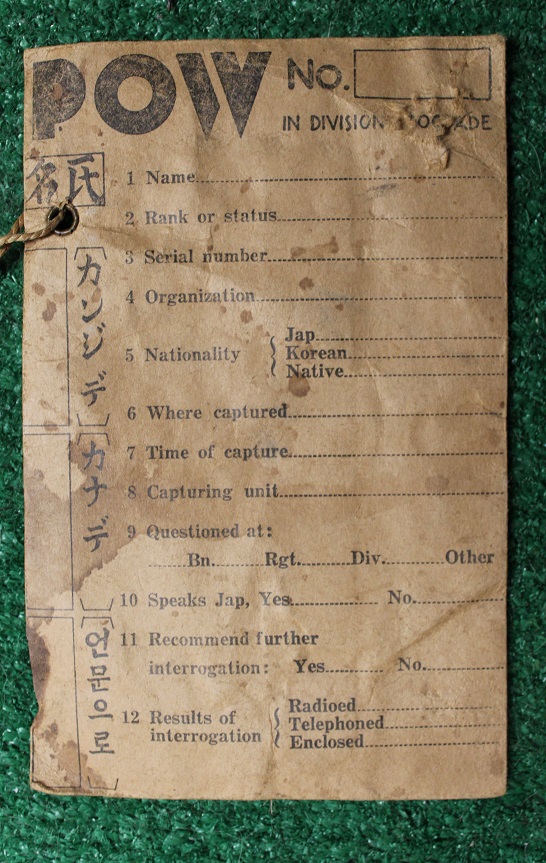 POW NO.
IN DIVISION
氏名
1 Name
2 Rank or status
3 Serial number
4 Organization
5 Nationality
Jap
Korean
Native
6 Where captured
7 Time of capture
8 Capturing unit
9 Questioned at:
Bn. Rgt. Div. Other
10 Speaks Jap, Yes No.
11 Recommend further
interrogation: Yes No.
12 Results of
interrogation
Radioed
Telephoned
Enclosed
(カンジデ)
(カナデ)
(언문으로)